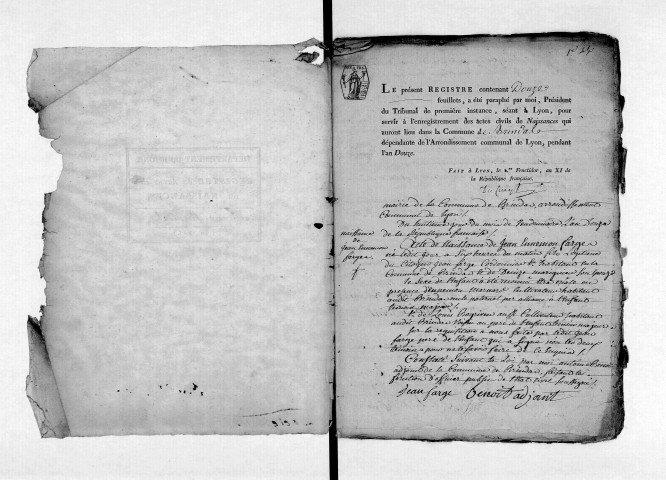 LE présent REGISTRE contenant Douze
feuillets, a été paraphé par moi, Président
du Tribunal de première instance, séant à Lyon, pour
servir à l'enregistrement des actes civils de Naissances qui
auront lieu dans la Commune de Brindas
dépendante de l'Arrondissement communal de Lyon, pendant
l'an Douze.
FAIT à LYON, le 1.er Fructidor, an XI de
la République française.
mairie de la Commune de Brindas arrondissement
Communal de Lyon
Du huitieme jour du mois de Vendemiaire l'an Douze
de la République française
naissance
de
farge
Acte de Naissance de Jean farge
né ledit jour à Six heures du matin fils légitime
du Citoyen Jean farge Cordonnier habitant en la
Commune de Brindas et de Son épouse
le Sexe de l'enfant a été reconnu
habitant
audit Brindas oncle par alliance à l'enfant
et de Louis Cultivateur habitant
audit Brindas
Sur la requisition à nous faite par ledit Jean
farge pere de l'enfant qui a Signé non les deux
témoins pour ne le Savoir faire de ce requis
Constaté Suivant la Loi par moi antoine Benoit
adjoint de la Commune de Brindas, faisant les
fonction d'officier public de l'état civil Soussigné
Jean farge Benoit adjoint